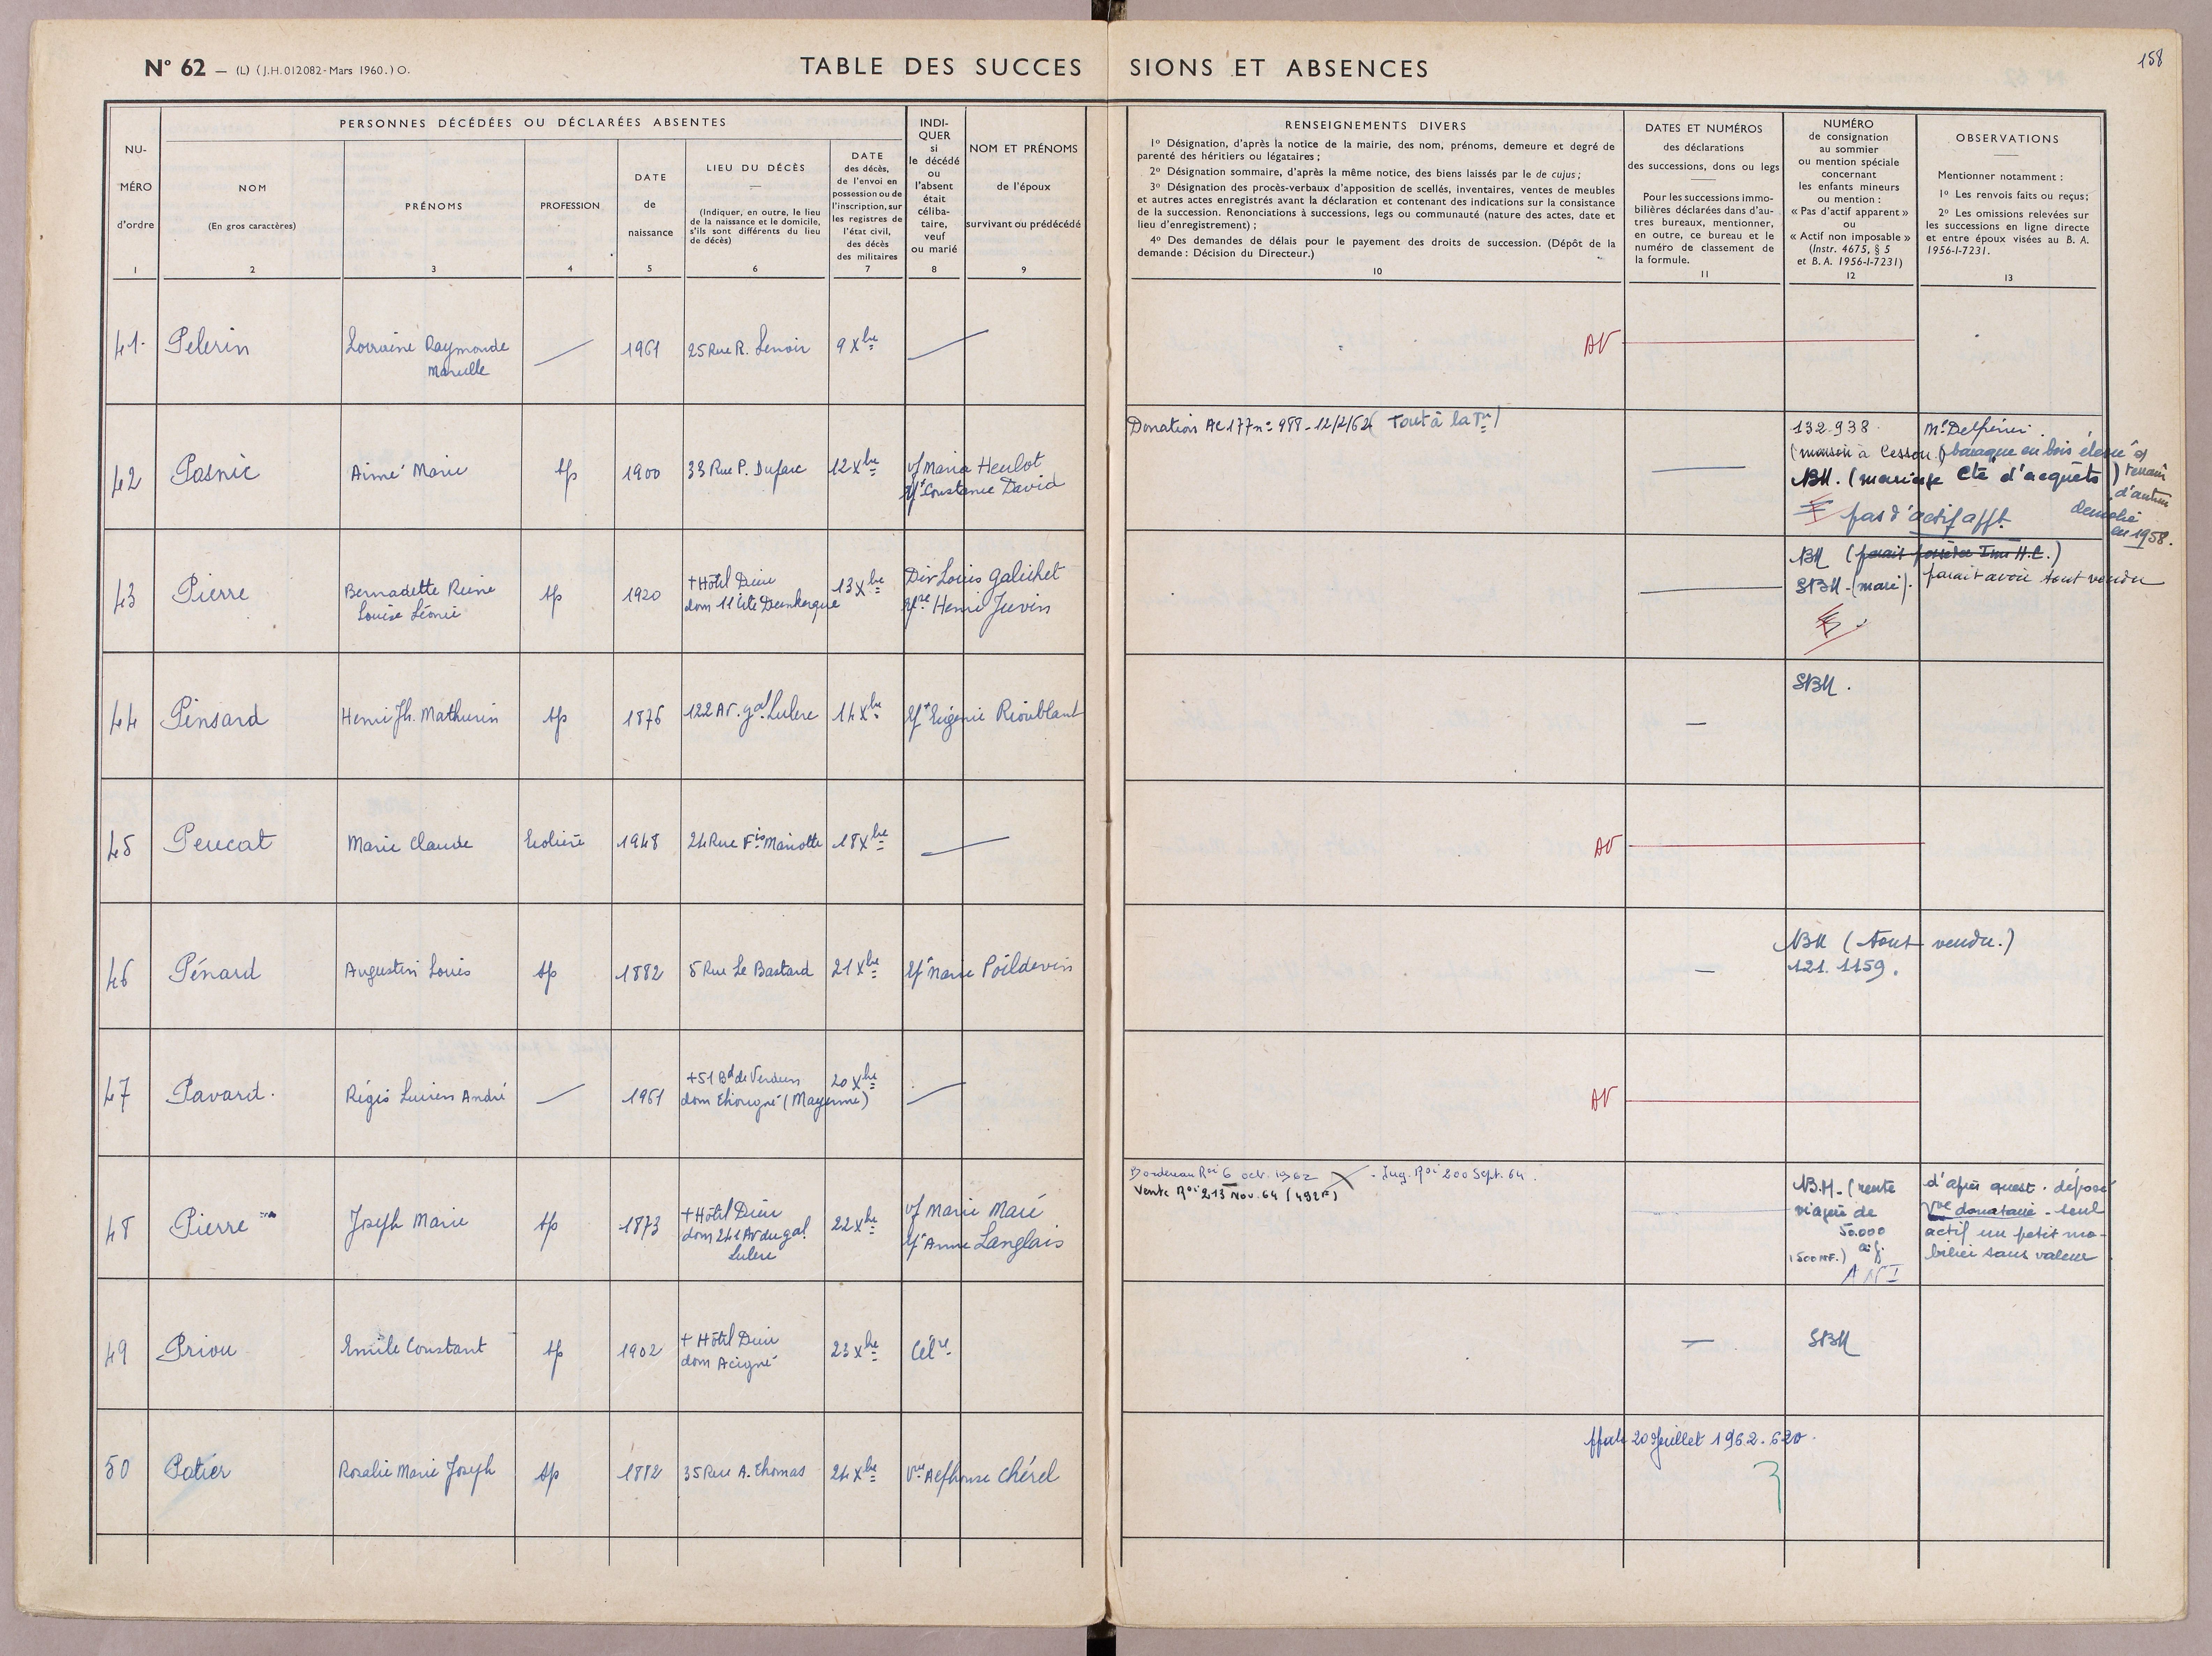 N° 62 — (L) (J.H. 012082 - Mars 1960.) O.
TABLE DES SUCCES SIONS ET ABSENCES
158
NU-
MÉRO
d'ordre
1
PERSONNES DÉCÉDÉES OU DÉCLARÉES ABSENTES
NOM
(En gros caractères)
2
PRÉNOMS
3
PROFESSION
4
DATE
de
naissance
5
LIEU DU DÉCÈS
(Indiquer, en outre, le lieu
de la naissance et le domicile,
s'ils sont différents du lieu
de décès)
6
DATE
des décès,
de l'envoi en
possession ou de
l'inscription, sur
les registres de
l'état civil,
des décès
des militaires
7
INDI-
QUER
si
le décédé
ou
l'absent
était
céliba-
taire,
veuf
ou marié
8
NOM ET PRÉNOMS
de l'époux
survivant ou prédécédé
9
RENSEIGNEMENTS DIVERS
1° Désignation, d'après la notice de la mairie, des nom, prénoms, demeure et degré de
parenté des héritiers ou légataires ;
2° Désignation sommaire, d'après la même notice, des biens laissés par le de cujus ;
3° Désignation des procès-verbaux d'apposition de scellés, inventaires, ventes de meubles
et autres actes enregistrés avant la déclaration et contenant des indications sur la consistance
de la succession. Renonciations à successions, legs ou communauté (nature des actes, date et
lieu d'enregistrement) ;
4° Des demandes de délais pour le payement des droits de succession. (Dépôt de la
demande : Décision du Directeur.)
10
DATES ET NUMÉROS
des déclarations
des successions, dons ou legs
Pour les successions immo-
bilières déclarées dans d'au-
tres bureaux, mentionner,
en outre, ce bureau et le
numéro de classement de
la formule.
11
NUMÉRO
de consignation
au sommier
ou mention spéciale
concernant
les enfants mineurs
ou mention :
« Pas d'actif apparent »
ou
« Actif non imposable »
(Instr. 4675, § 5
et B. A. 1956-I-7231)
12
OBSERVATIONS
Mentionner notamment :
1° Les renvois faits ou reçus ;
2° Les omissions relevées sur
les successions en ligne directe
et entre époux visées au B. A.
1956-I-7231.
13
41 Pelerin Lorraine Raymonde 1961 25 Rue R. Lenoir 9 Xbre AV
Marcelle
Donation AC 177 n° 988 - 12/2/62 (Tout à la Pre)
132.938. Me Delpérier.
(maison à Cesson.) (baraque en bois élevée s/ terrain
d'autrui
42 Pasnic Aimé Marie sp 1900 33 Rue P. Dufarc 12 Xbre vf Maria Heulot
Ux Constance David
NBM. (mariage Cté d'acquêts)
pas d'actif afft. démolie
en 1958.
43 Pierre Bernadette Reine sp 1920 + Hôtel Dieu 13 Xbre Div Louis Galichet
Louise Léonie dom 11 cité Dunkerque Henri Juvin
NBM (parait posséder Imm H.C.)
SBM - (mari). parait avoir tout vendu
44 Pinsard Henri Jh. Mathurin sp 1876 122 Av. gal Leclerc 14 Xbre Ux Eugénie Rioublant SBM.
45 Peucat Marie Claude Ecolière 1948 24 Rue Fis Mariotte 18 Xbre AV
46 Pénard Augustin Louis sp 1882 5 Rue Le Bastard 21 Xbre Ux Marie Poildevin
NBM (tout vendu.)
121. 1159.
47 Pavard. Régis Lucien André 1961 + 51 Bd de Verdun 20 Xbre AV
dom Thorigné (Mayenne)
Bordereau Roi 6 oct. 1962 - Jug. Roi 200 Sept. 64.
Vente Roi 213 Nov. 64 (492F)
48 Pierre Joseph Marie sp 1873 + Hôtel Dieu 22 Xbre vf Marie Maré
dom 241 Av du gal Ux Anne Langlais
Leclerc
NBM - (rente
viagère de
50.000
(500 NF.) a.f.
A N I
d'après quest. déposé
Vve donataire - seul
actif un petit mo-
bilier sans valeur
49 Priou Emile Constant sp 1902 + Hôtel Dieu 23 Xbre Célre. SBM
dom Acigné
50 Patier Rosalie Marie Joseph sp 1882 35 Rue A. Thomas 24 Xbre Vve Alphonse Chérel
20 Juillet 1962. 620.